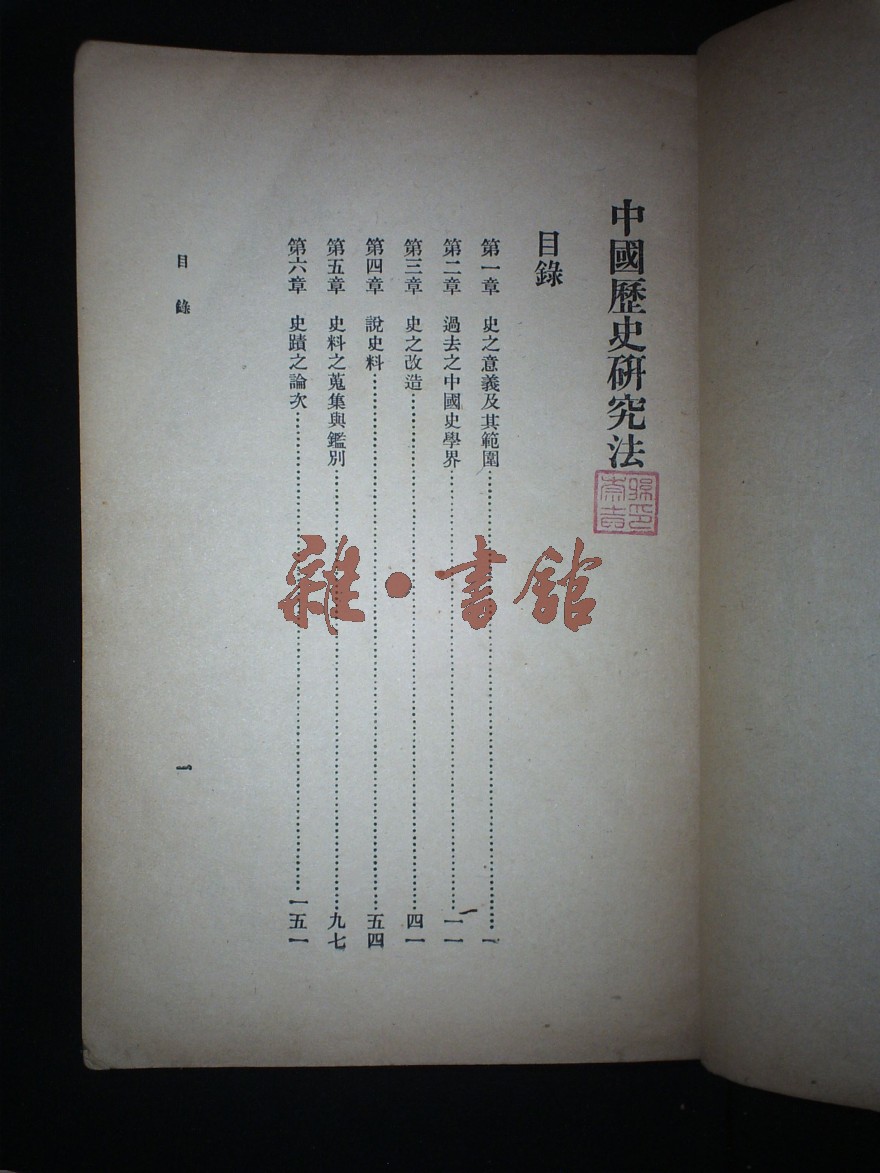 中國歷史研究法
目錄
第一章 史之意義及其範圍……一
第二章 過去之中國史學界……一一
第三章 史之改造……四一
第四章 說史料……五四
第五章 史料之蒐集與鑑別……九七
第六章 史蹟之論次……一五一
目錄
一
雜·書館